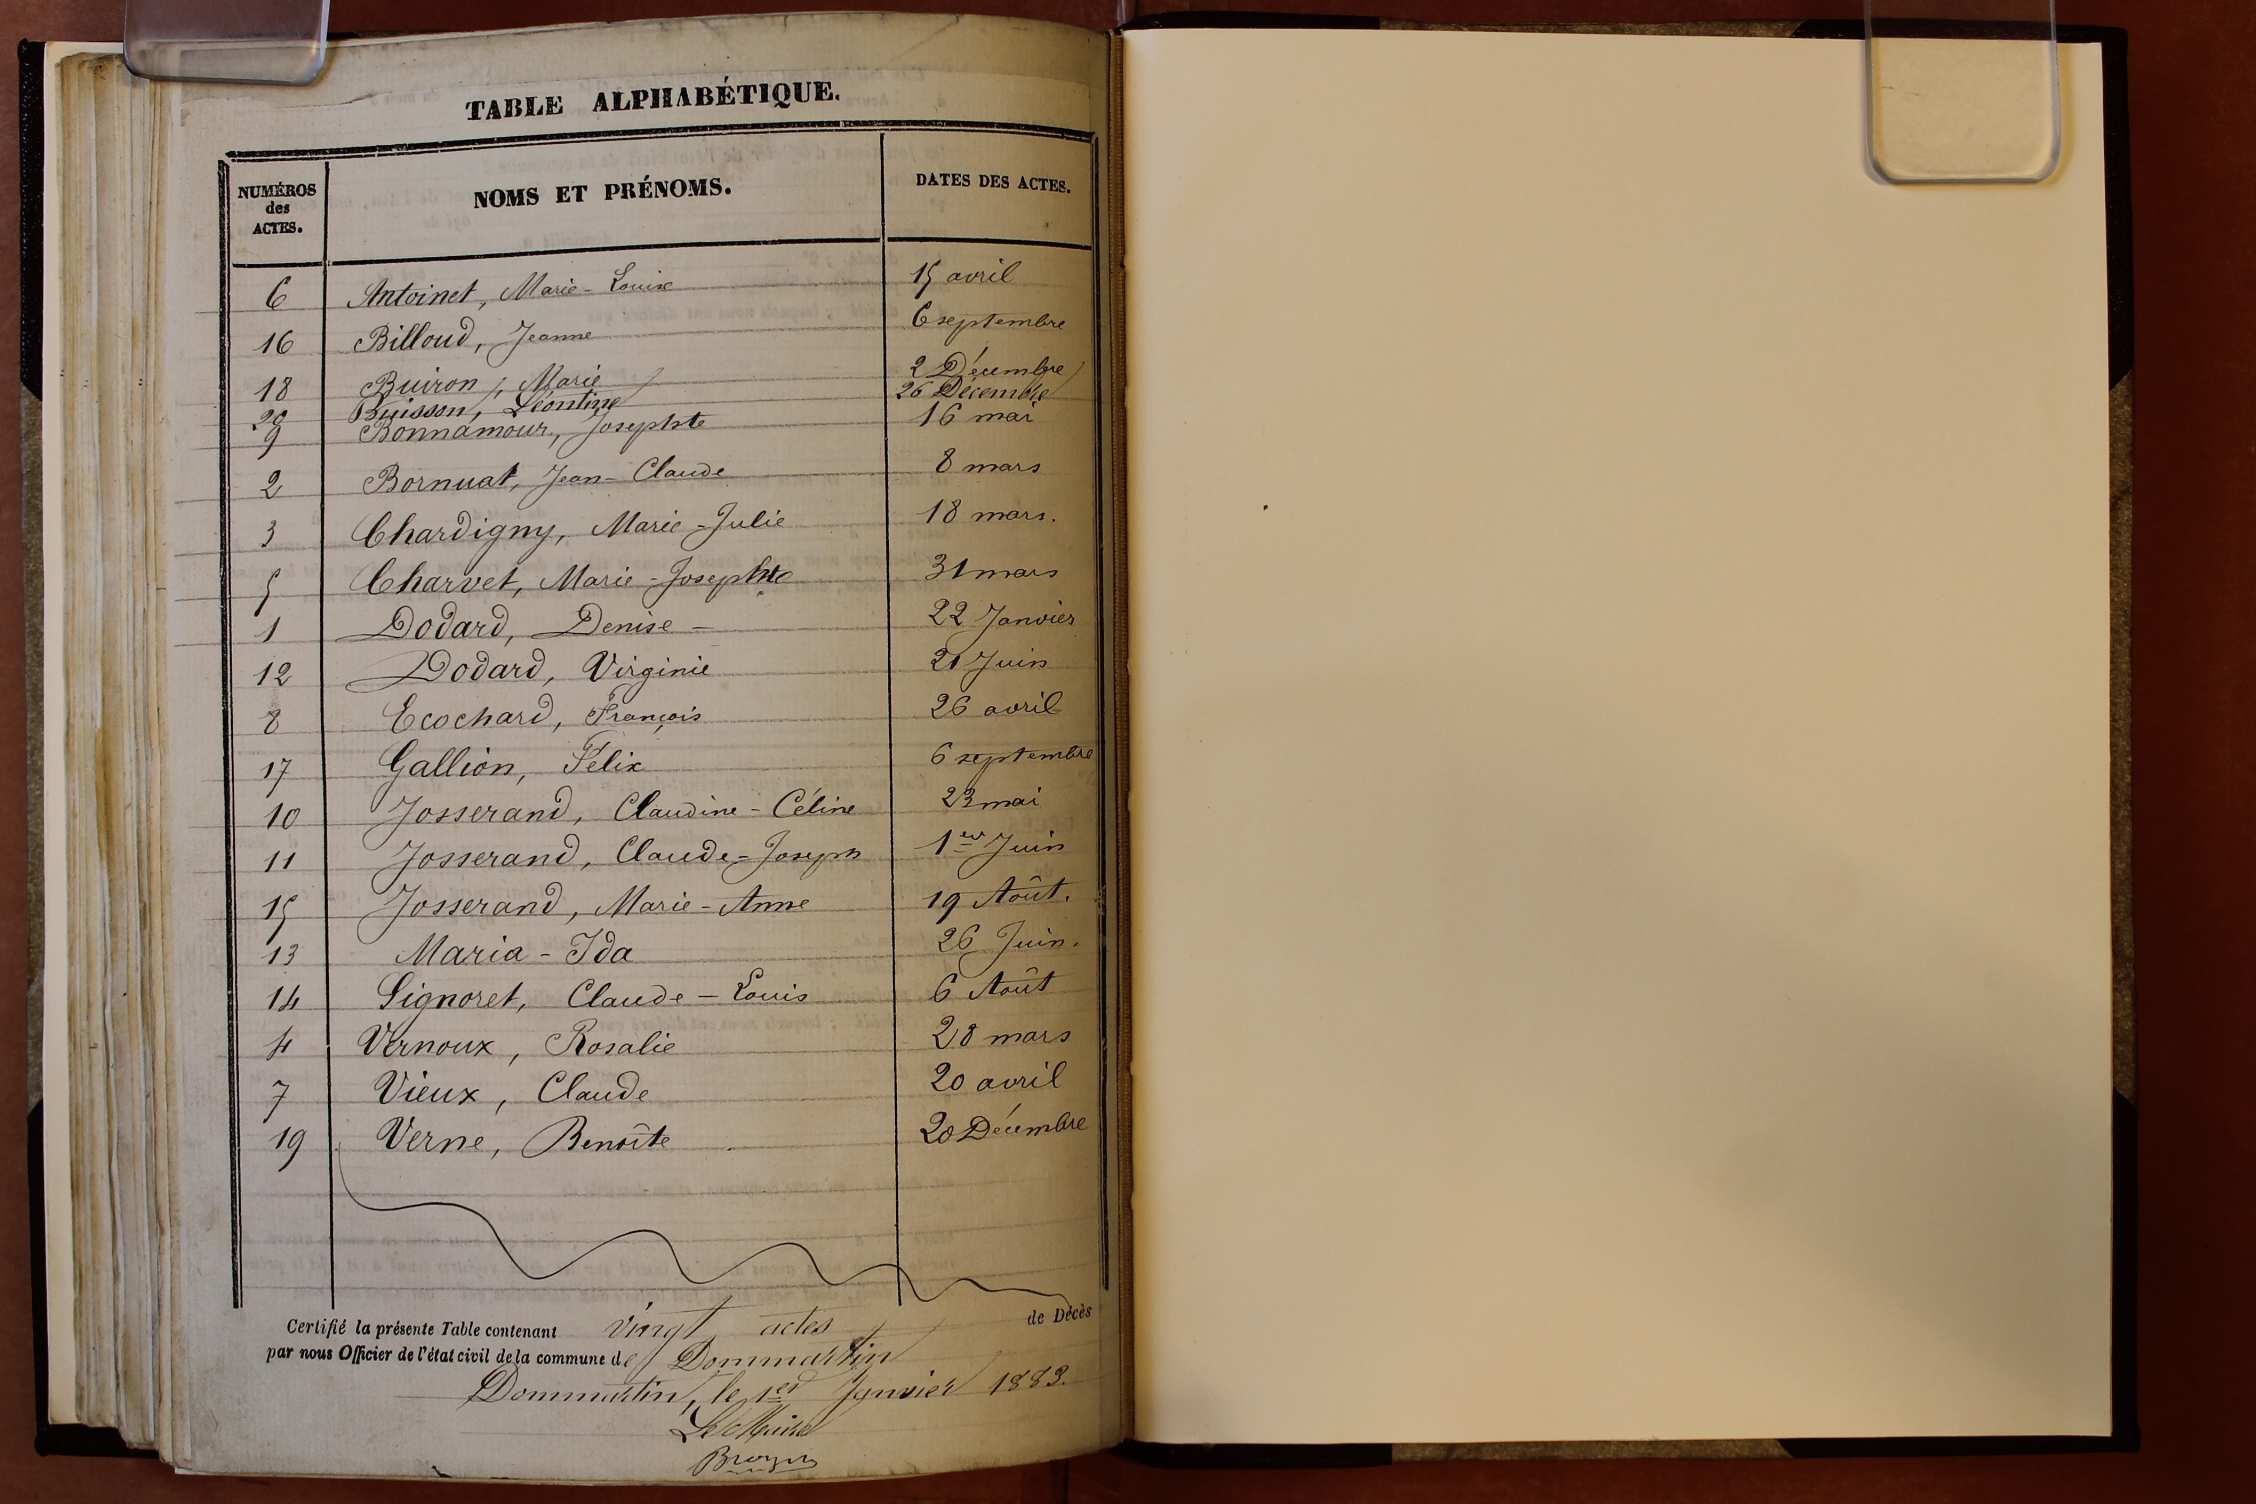 TABLE ALPHABÉTIQUE.
NUMÉROS des ACTES. NOMS ET PRÉNOMS. DATES DES ACTES.
6 Antoinet, Marie-Louise 15 avril
16 Billoud, Jeanne 6 septembre
18 Buiron, Marie 2 Décembre
20 Buisson, Léontine 26 Décembre
9 Bonnamour, Josephte 16 mai
2 Bornuat, Jean-Claude 8 mars
3 Chardigny, Marie-Julie 18 mars.
5 Charvet, Marie-Josephte 31 mars
1 Dodard, Denise 22 Janvier
12 Dodard, Virginie 21 Juin
8 Ecochard, François 26 avril
17 Gallion, Félix 6 septembre
10 Josserand, Claudine-Céline 23 mai
11 Josserand, Claude-Joseph 1er Juin
15 Josserand, Marie-Anne 19 Août.
13 Maria-Ida 26 Juin.
14 Signoret, Claude-Louis 6 Août
4 Vernoux, Rosalie 28 mars
7 Vieux, Claude 20 avril
19 Verne, Benoîte 20 Décembre
Certifié la présente Table contenant vingt actes de Décès
par nous Officier de l'état civil de la commune de Dommartin
Dommartin, le 1er Janvier 1883.
Le Maire